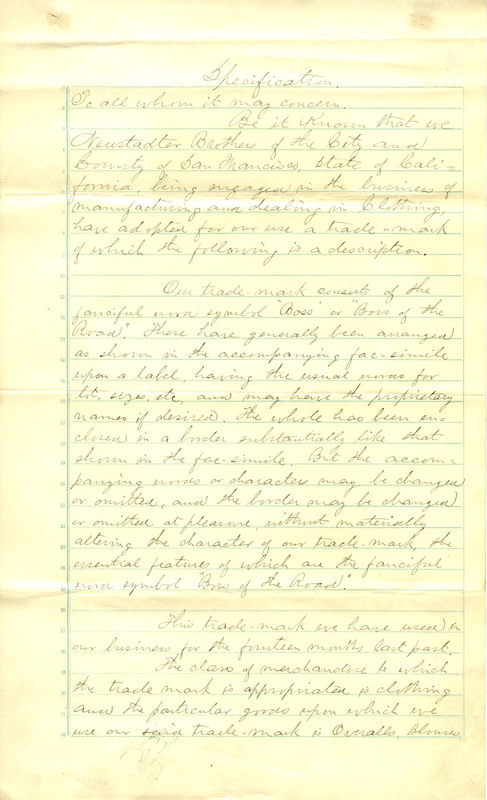 Specification.
To all whom it may concern.
Be it Known that we
Neustadter Brothers of the City and
County of San Francisco, State of Cali-
fornia, being engaged in the business of
manufacturing and dealing in Clothing,
have adopted for our use a trade-mark
of which the following is a description.
Our trade-mark consists of the
fanciful word symbol "Boss" or "Boss of the
Road". These have generally been arranged
as shown in the accompanying fac-simile
upon a label, having the usual words for
lot, sizes, etc, and may have the proprietary
names if desired. The whole has been en-
closed in a border substantially like that
shown in the fac-simile. But the accom-
panying words or characters may be changed
or omitted, and the border may be changed
or omitted at pleasure, without materially
altering the character of our trade-mark, the
essential features of which are the fanciful
word symbol "Boss of the Road".
This trade-mark we have used in
our business for the fourteen months last past.
The class of merchandise to which
the trade mark is appropriated is clothing
and the particular goods upon which we
use our said trade-mark is Overalls, Blouses